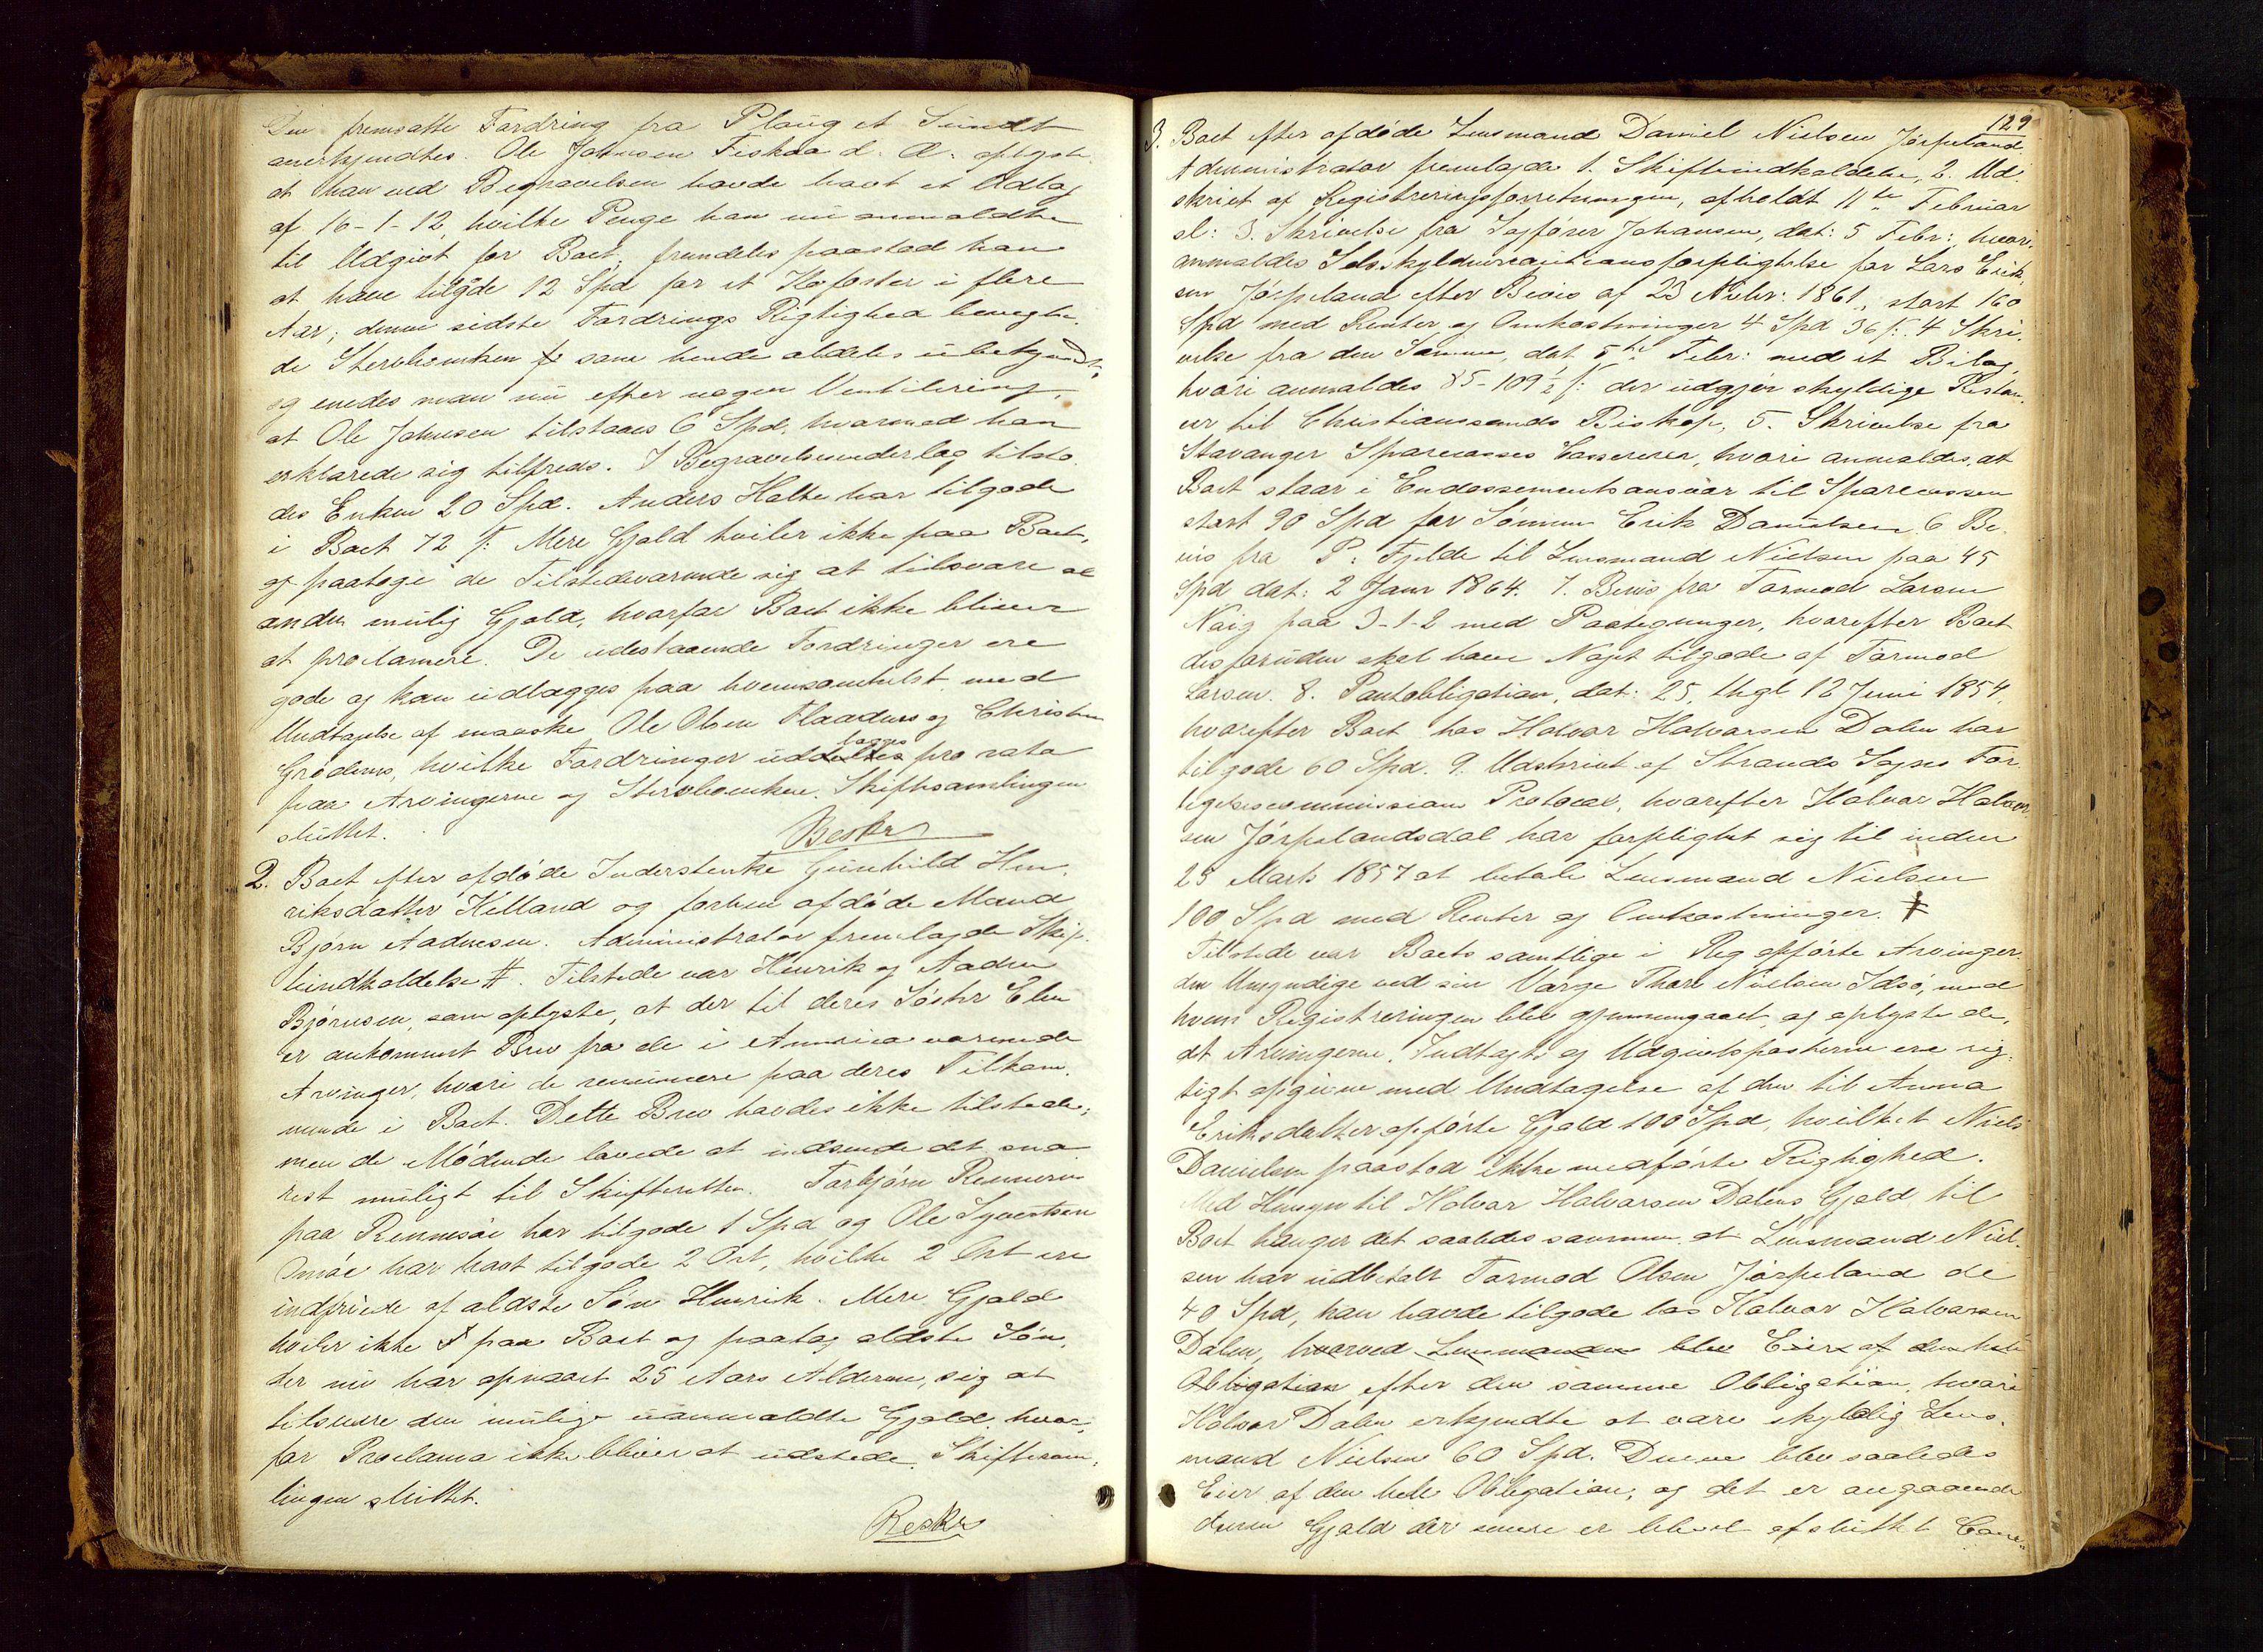 Den fremsatte Fordring fra Ploug et Sundt
anerkjendtes. Ole Johnsen Fiskaa d. Æ. oplyste
at han ved Begravelsen havde havt et Udlæg
af 16-1-12, hvilke Penge han nu anmeldte
til Udgivt for Boet, fremdeles paastod han
at have tilgode 12 Spd for et Kofoster i flere
Aar; denne sidste Fordrings Rigtighed benegte
de Sterboenken som hende aldeles ubekjendt,
og enedes man nu efter nogen Ventilering,
at Ole Johnsen tilstaaes 6 Spd. hvormed han
erklærede sig tilfreds. I Begravelsesudlæg tilsto
des Enken 20 Spd. Anders Helte har tilgode
i Boet 72 ſ: Mere Gjæld hviler ikke paa Boet,
og paatoge de Tilstedeværende sig at tilsvare al
anden mulig Gjæld, hvorfor Boet ikke bliver
at proclamere. De udestaaende Fordringer ere
gode og kan udlægges paa hvemsomhelst med
Undtagelse af maaske Ole Olsen og Christen
Grødems, hvilke Fordringer uddeltes lægges pro rata
paa Arvingerne og Sterboenken. Skiftesamlingen
sluttet.
2. Boet efter afdøde Inderstenke Gunhild Hen-
riksdatter Killand og forhen afdøde Mand
Bjørn Aadnesen. Administrator fremlagde Skif-
teindkaldelse #. Tilstede var Henrik og Aadne
Bjørnsen, som oplyste, at der til deres Søster Elen
er ankommet Brev fra de i America værende
Arvinger, hvori de renuncere paa deres Tilkom-
mende i Boet. Dette Brev havdes ikke tilstede,
men de Mødende lovede at indsende det sna-
rest muligt til Skifteretten. Torbjørn Rennesøe
paa Rennesøe har tilgode 1 Spd og Ole Syvertsen
Omøe har havt tilgode 2 Ort, hvilke 2 Ort ere
indfriede af ældste Søn Henrik. Mere Gjæld
hviler ikke paa Boet og paatog ældste Søn,
der nu har opnaaet 25 Aars Alderen, sig at
tilsvare den mulige uanmeldte Gjæld, hvor-
for Proclama ikke bliver at udstede. Skiftesam-
lingen sluttet.
129
3. Boet efter afdøde Lensmand Daniel Nielsen Jørpeland
Administrator fremlagde 1. Skifteindkaldelse, 2. Ud-
skrivt af Registreringsforretningen, afholdt 11te Februar
sl: 3. Skrivelse fra Sagfører Johansen, dat: 5 Febr:, hvori
anmeldes Selvskyldnercautionsforpligtelse for Lars Erik-
sen Jørpeland efter Bevis af 23 Novbr: 1861, stort 160
Spd med Renter og Omkostninger 4 Spd 36 ſ: 4 Skri-
velse fra den Samme, dat 5te Febr: med et Bilag,
hvori anmeldes 85-109 ½ ſ: der udgjør skyldige Restan-
cer til Christianssands Biskop, 5. Skrivelse fra
Stavanger Sparecasses Casserer, hvori anmeldes, at
Boet staar i Endossementsansvar til Sparecassen
stort 90 Spd for Sønnen Erik Danielsen 6 Be-
vis fra P: Fjelde til Lensmand Nielsen paa 45
Spd dat: 2 Janr 1864. 7. Bevis fra Tormod Larsen
Nåig paa 3-1-2 med Paategninger, hvorefter Boet
desforuden skal have Noget tilgode af Tormod
Larsen. 8. Pantobligation, dat: 25, thgl 12 Juni 1854,
hvorefter Boet hos Halvor Halvorsen Dalen har
tilgode 60 Spd. 9. Udskrivt af Strands Sogns For-
ligelsescommissions Protocol, hvorefter Halvor Halvor
sen Jørpelandsdal har forpligtet sig til inden
25 Marts 1857 at betale Lensmand Nielsen
100 Spd med Renter og Omkostninger. #
Tilstede var Boets samtlige i Reg opførte Arvinger,
den Umyndige ved sin Værge Thore Nielsen Idsø, med
hvem Registreringen blev gjennemgaaet, og oplyste de,
at Arvingerne, Indtægts og Udgivtsposterne ere rig-
tigt opgivne med Undtagelse af den til Anna
Eriksdatter opførte Gjæld 100 Spd, hvilket Niels
Danielsen paastod ikke medførte Rigtighed.
Med Hensyn til Halvor Halvorsen Dalens Gjæld til
Boet hænger det saaledes sammen at Lensmand Niel-
sen har udbetalt Tormod Olsen Jørpeland de
40 Spd, han havde tilgode hos Halvor Halvorsen
Dalen, hvorved Lensmanden blev Eier af den hele
Obligation efter den samme Obligation, hvori
Halvor Dalen erkjendte at være skyldig Lens-
mand Nielsen 60 Spd. Denne blev saaledes
Eier af den hele Obligation, og det er angaaende
denne Gjæld der senere er blevet afsluttet